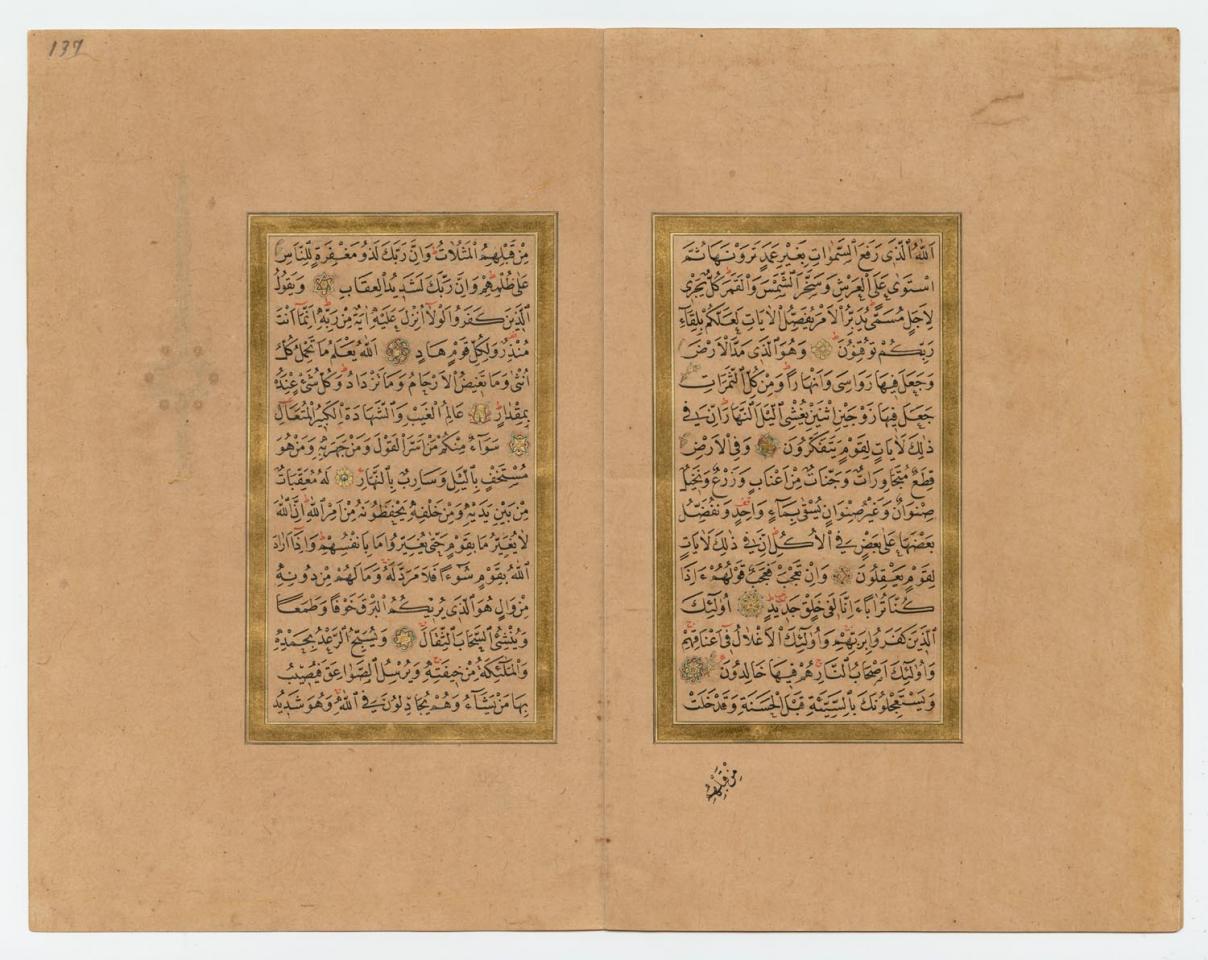 اَللّٰهُ الَّذٖى رَفَعَ السَّمٰوَاتِ بِغَيْرِ عَمَدٍ تَرَوْنَهَا ثُمَّ
اسْتَوٰى عَلَى الْعَرْشِ وَسَخَّرَ الشَّمْسَ وَالْقَمَرَ كُلٌّ يَجْرٖى
لِاَجَلٍ مُسَمًّى يُدَبِّرُ الْاَمْرَ يُفَصِّلُ الْاٰيَاتِ لَعَلَّكُمْ بِلِقَٓاءِ
رَبِّكُمْ تُوقِنُونَ وَهُوَ الَّذٖى مَدَّ الْاَرْضَ
وَجَعَلَ فٖيهَا رَوَاسِىَ وَاَنْهَارًا وَمِنْ كُلِّ الثَّمَرَاتِ
جَعَلَ فٖيهَا زَوْجَيْنِ اثْنَيْنِ يُغْشِى الَّيْلَ النَّهَارَ اِنَّ فٖى
ذٰلِكَ لَاٰيَاتٍ لِقَوْمٍ يَتَفَكَّرُونَ وَفِى الْاَرْضِ
قِطَعٌ مُتَجَاوِرَاتٌ وَجَنَّاتٌ مِنْ اَعْنَابٍ وَزَرْعٌ وَنَخٖيلٌ
صِنْوَانٌ وَغَيْرُ صِنْوَانٍ يُسْقٰى بِمَٓاءٍ وَاحِدٍ وَنُفَضِّلُ
بَعْضَهَا عَلٰى بَعْضٍ فِى الْاُكُلِ اِنَّ فٖى ذٰلِكَ لَاٰيَاتٍ
لِقَوْمٍ يَعْقِلُونَ وَاِنْ تَعْجَبْ فَعَجَبٌ قَوْلُهُمْ ءَاِذَا
كُنَّا تُرَابًا ءَاِنَّا لَفٖى خَلْقٍ جَدٖيدٍ اُولٰٓئِكَ
الَّذٖينَ كَفَرُوا بِرَبِّهِمْ وَاُولٰٓئِكَ الْاَغْلَالُ فٖى اَعْنَاقِهِمْ
وَاُولٰٓئِكَ اَصْحَابُ النَّارِ هُمْ فٖيهَا خَالِدُونَ
وَيَسْتَعْجِلُونَكَ بِالسَّيِّئَةِ قَبْلَ الْحَسَنَةِ وَقَدْ خَلَتْ
مِنْ قَبْلِهِمُ
137
مِنْ قَبْلِهِمُ الْمَثُلَاتُ وَاِنَّ رَبَّكَ لَذُو مَغْفِرَةٍ لِلنَّاسِ
عَلٰى ظُلْمِهِمْ وَاِنَّ رَبَّكَ لَشَدٖيدُ الْعِقَابِ وَيَقُولُ
الَّذٖينَ كَفَرُوا لَوْلَٓا اُنْزِلَ عَلَيْهِ اٰيَةٌ مِنْ رَبِّهٖ اِنَّمَٓا اَنْتَ
مُنْذِرٌ وَلِكُلِّ قَوْمٍ هَادٍ اَللّٰهُ يَعْلَمُ مَا تَحْمِلُ كُلُّ
اُنْثٰى وَمَا تَغٖيضُ الْاَرْحَامُ وَمَا تَزْدَادُ وَكُلُّ شَىْءٍ عِنْدَهُ
بِمِقْدَارٍ عَالِمُ الْغَيْبِ وَالشَّهَادَةِ الْكَبٖيرُ الْمُتَعَالِ
سَوَٓاءٌ مِنْكُمْ مَنْ اَسَرَّ الْقَوْلَ وَمَنْ جَهَرَ بِهٖ وَمَنْ هُوَ
مُسْتَخْفٍ بِالَّيْلِ وَسَارِبٌ بِالنَّهَارِ لَهُ مُعَقِّبَاتٌ
مِنْ بَيْنِ يَدَيْهِ وَمِنْ خَلْفِهٖ يَحْفَظُونَهُ مِنْ اَمْرِ اللّٰهِ اِنَّ اللّٰهَ
لَا يُغَيِّرُ مَا بِقَوْمٍ حَتّٰى يُغَيِّرُوا مَا بِاَنْفُسِهِمْ وَاِذَٓا اَرَادَ
اللّٰهُ بِقَوْمٍ سُٓوءًا فَلَا مَرَدَّ لَهُ وَمَا لَهُمْ مِنْ دُونِهٖ
مِنْ وَالٍ هُوَ الَّذٖى يُرٖيكُمُ الْبَرْقَ خَوْفًا وَطَمَعًا
وَيُنْشِئُ السَّحَابَ الثِّقَالَ وَيُسَبِّحُ الرَّعْدُ بِحَمْدِهٖ
وَالْمَلٰٓئِكَةُ مِنْ خٖيفَتِهٖ وَيُرْسِلُ الصَّوَاعِقَ فَيُصٖيبُ
بِهَا مَنْ يَشَٓاءُ وَهُمْ يُجَادِلُونَ فِى اللّٰهِ وَهُوَ شَدٖيدُ